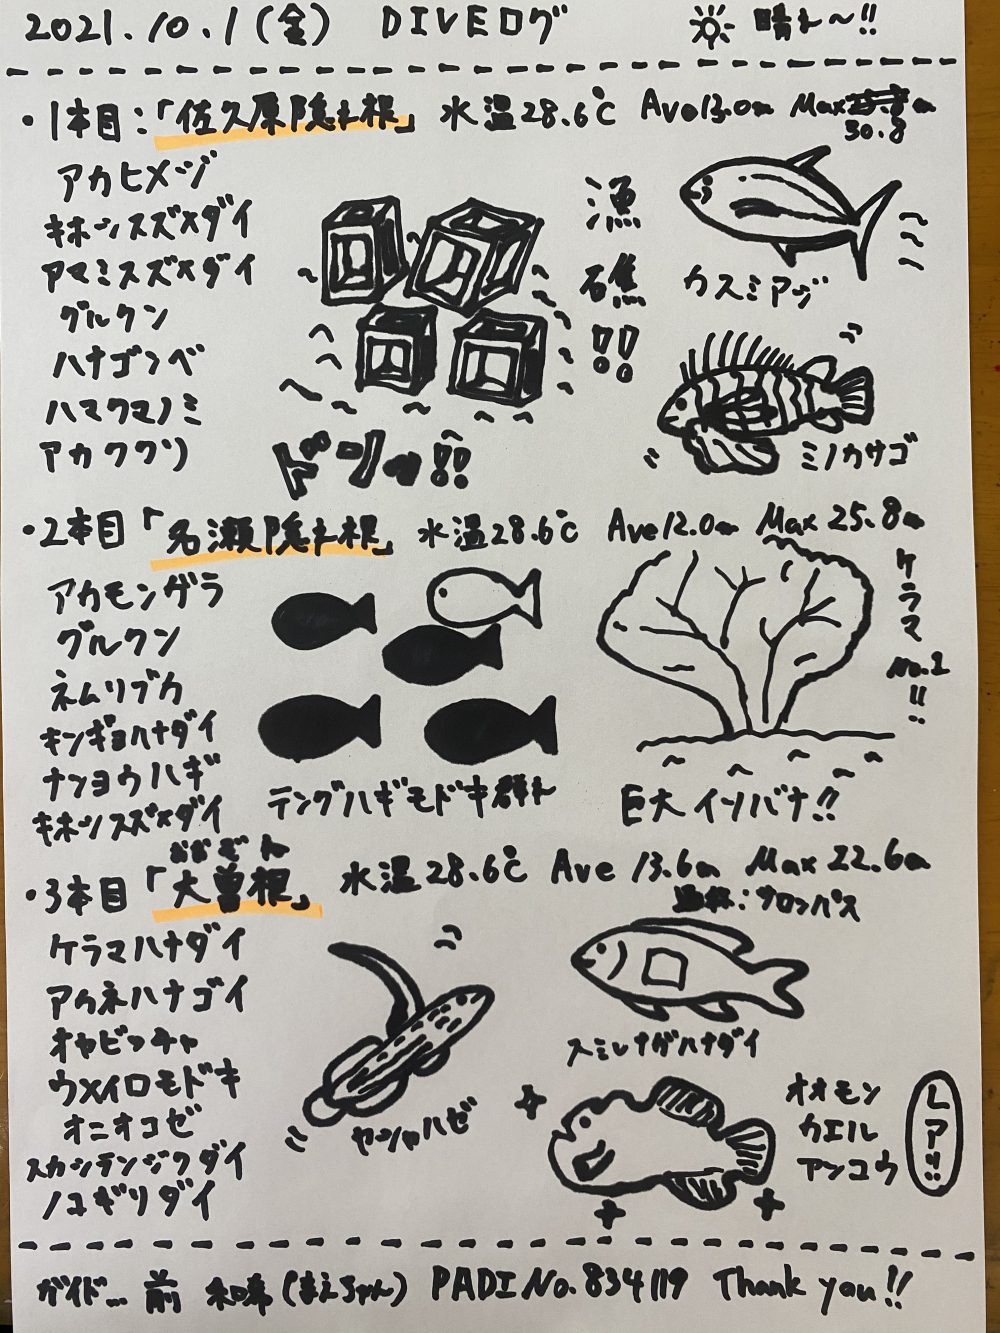 2021.10.1(金) DIVEログ 晴れ〜!!
・1本目:「佐久原隠れ根」 水温28.6℃ Ave13.0m Max25.8m
30.8
アカヒメジ
キホシスズメダイ
アマミスズメダイ
グルクン
ハナゴンベ
ハマクマノミ
アカククリ
漁礁!!
ドドン!!
カスミアジ
ミノカサゴ
・2本目「名瀬隠れ根」 水温28.6℃ Ave12.0m Max25.8m
アカモンガラ
グルクン
ネムリブカ
キンギョハナダイ
ナンヨウハギ
キホシスズメダイ
テングハギモドキ群れ
ケラマNo.1!!
巨大イソバナ!!
おおぞね
・3本目「大曽根」 水温28.6℃ Ave 13.6m Max22.6m
ケラマハナダイ
アカネハナゴイ
オヤビッチャ
ウメイロモドキ
オニオコゼ
スカシテンジクダイ
ノコギリダイ
ヤシャハゼ
通称:サロンパス
スミレナガハナダイ
オオモン
カエル
アンコウ
レアッ!!
ガイド... 前 和希(まえちゃん) PADI No.834119 Thank you!!